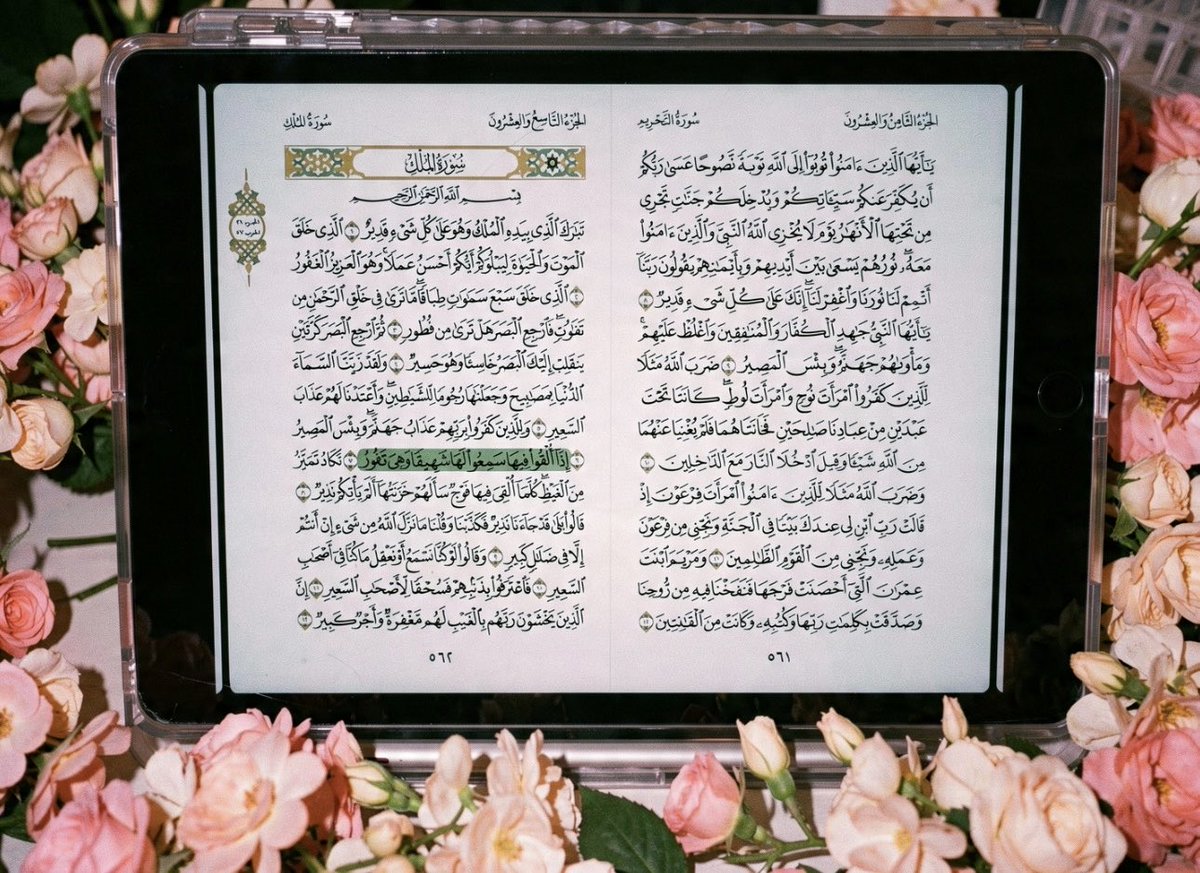 الجُزْءُ الثَّامِنُ وَالعِشْرُونَ سُورَةُ التَّحْرِيمِ
يَٰٓأَيُّهَا ٱلَّذِينَ ءَامَنُوا۟ تُوبُوٓا۟ إِلَى ٱللَّهِ تَوْبَةً نَّصُوحًا عَسَىٰ رَبُّكُمْ
أَن يُكَفِّرَ عَنكُمْ سَيِّـَٔاتِكُمْ وَيُدْخِلَكُمْ جَنَّٰتٍ تَجْرِى
مِن تَحْتِهَا ٱلْأَنْهَٰرُ يَوْمَ لَا يُخْزِى ٱللَّهُ ٱلنَّبِىَّ وَٱلَّذِينَ ءَامَنُوا۟
مَعَهُۥ نُورُهُمْ يَسْعَىٰ بَيْنَ أَيْدِيهِمْ وَبِأَيْمَٰنِهِمْ يَقُولُونَ رَبَّنَآ
أَتْمِمْ لَنَا نُورَنَا وَٱغْفِرْ لَنَآ إِنَّكَ عَلَىٰ كُلِّ شَىْءٍ قَدِيرٌ ٨
يَٰٓأَيُّهَا ٱلنَّبِىُّ جَٰهِدِ ٱلْكُفَّارَ وَٱلْمُنَٰفِقِينَ وَٱغْلُظْ عَلَيْهِمْ
وَمَأْوَىٰهُمْ جَهَنَّمُ وَبِئْسَ ٱلْمَصِيرُ ٩ ضَرَبَ ٱللَّهُ مَثَلًا
لِّلَّذِينَ كَفَرُوا۟ ٱمْرَأَتَ نُوحٍ وَٱمْرَأَتَ لُوطٍ كَانَتَا تَحْتَ
عَبْدَيْنِ مِنْ عِبَادِنَا صَٰلِحَيْنِ فَخَانَتَاهُمَا فَلَمْ يُغْنِيَا عَنْهُمَا
مِنَ ٱللَّهِ شَيْـًٔا وَقِيلَ ٱدْخُلَا ٱلنَّارَ مَعَ ٱلدَّٰخِلِينَ ١٠
وَضَرَبَ ٱللَّهُ مَثَلًا لِّلَّذِينَ ءَامَنُوا۟ ٱمْرَأَتَ فِرْعَوْنَ إِذْ
قَالَتْ رَبِّ ٱبْنِ لِى عِندَكَ بَيْتًا فِى ٱلْجَنَّةِ وَنَجِّنِى مِن فِرْعَوْنَ
وَعَمَلِهِۦ وَنَجِّنِى مِنَ ٱلْقَوْمِ ٱلظَّٰلِمِينَ ١١ وَمَرْيَمَ ٱبْنَتَ
عِمْرَٰنَ ٱلَّتِىٓ أَحْصَنَتْ فَرْجَهَا فَنَفَخْنَا فِيهِ مِن رُّوحِنَا
وَصَدَّقَتْ بِكَلِمَٰتِ رَبِّهَا وَكُتُبِهِۦ وَكَانَتْ مِنَ ٱلْقَٰنِتِينَ ١٢
٥٦١
الجُزْءُ التَّاسِعُ وَالعِشْرُونَ سُورَةُ المُلْكِ
سُورَةُ المُلْكِ
الجزء ٢٩
الحزب ٥٧
بِسْمِ ٱللَّهِ ٱلرَّحْمَٰنِ ٱلرَّحِيمِ
تَبَٰرَكَ ٱلَّذِى بِيَدِهِ ٱلْمُلْكُ وَهُوَ عَلَىٰ كُلِّ شَىْءٍ قَدِيرٌ ١ ٱلَّذِى خَلَقَ
ٱلْمَوْتَ وَٱلْحَيَوٰةَ لِيَبْلُوَكُمْ أَيُّكُمْ أَحْسَنُ عَمَلًا وَهُوَ ٱلْعَزِيزُ ٱلْغَفُورُ
٢ ٱلَّذِى خَلَقَ سَبْعَ سَمَٰوَٰتٍ طِبَاقًا مَّا تَرَىٰ فِى خَلْقِ ٱلرَّحْمَٰنِ مِن
تَفَٰوُتٍ فَٱرْجِعِ ٱلْبَصَرَ هَلْ تَرَىٰ مِن فُطُورٍ ٣ ثُمَّ ٱرْجِعِ ٱلْبَصَرَ كَرَّتَيْنِ
يَنقَلِبْ إِلَيْكَ ٱلْبَصَرُ خَاسِئًا وَهُوَ حَسِيرٌ ٤ وَلَقَدْ زَيَّنَّا ٱلسَّمَآءَ
ٱلدُّنْيَا بِمَصَٰبِيحَ وَجَعَلْنَٰهَا رُجُومًا لِّلشَّيَٰطِينِ وَأَعْتَدْنَا لَهُمْ عَذَابَ
ٱلسَّعِيرِ ٥ وَلِلَّذِينَ كَفَرُوا۟ بِرَبِّهِمْ عَذَابُ جَهَنَّمَ وَبِئْسَ ٱلْمَصِيرُ
٦ إِذَآ أُلْقُوا۟ فِيهَا سَمِعُوا۟ لَهَا شَهِيقًا وَهِىَ تَفُورُ ٧ تَكَادُ تَمَيَّزُ
مِنَ ٱلْغَيْظِ كُلَّمَآ أُلْقِىَ فِيهَا فَوْجٌ سَأَلَهُمْ خَزَنَتُهَآ أَلَمْ يَأْتِكُمْ نَذِيرٌ ٨
قَالُوا۟ بَلَىٰ قَدْ جَآءَنَا نَذِيرٌ فَكَذَّبْنَا وَقُلْنَا مَا نَزَّلَ ٱللَّهُ مِن شَىْءٍ إِنْ أَنتُمْ
إِلَّا فِى ضَلَٰلٍ كَبِيرٍ ٩ وَقَالُوا۟ لَوْ كُنَّا نَسْمَعُ أَوْ نَعْقِلُ مَا كُنَّا فِىٓ أَصْحَٰبِ
ٱلسَّعِيرِ ١٠ فَٱعْتَرَفُوا۟ بِذَنۢبِهِمْ فَسُحْقًا لِّأَصْحَٰبِ ٱلسَّعِيرِ ١١ إِنَّ
ٱلَّذِينَ يَخْشَوْنَ رَبَّهُم بِٱلْغَيْبِ لَهُم مَّغْفِرَةٌ وَأَجْرٌ كَبِيرٌ ١٢
٥٦٢